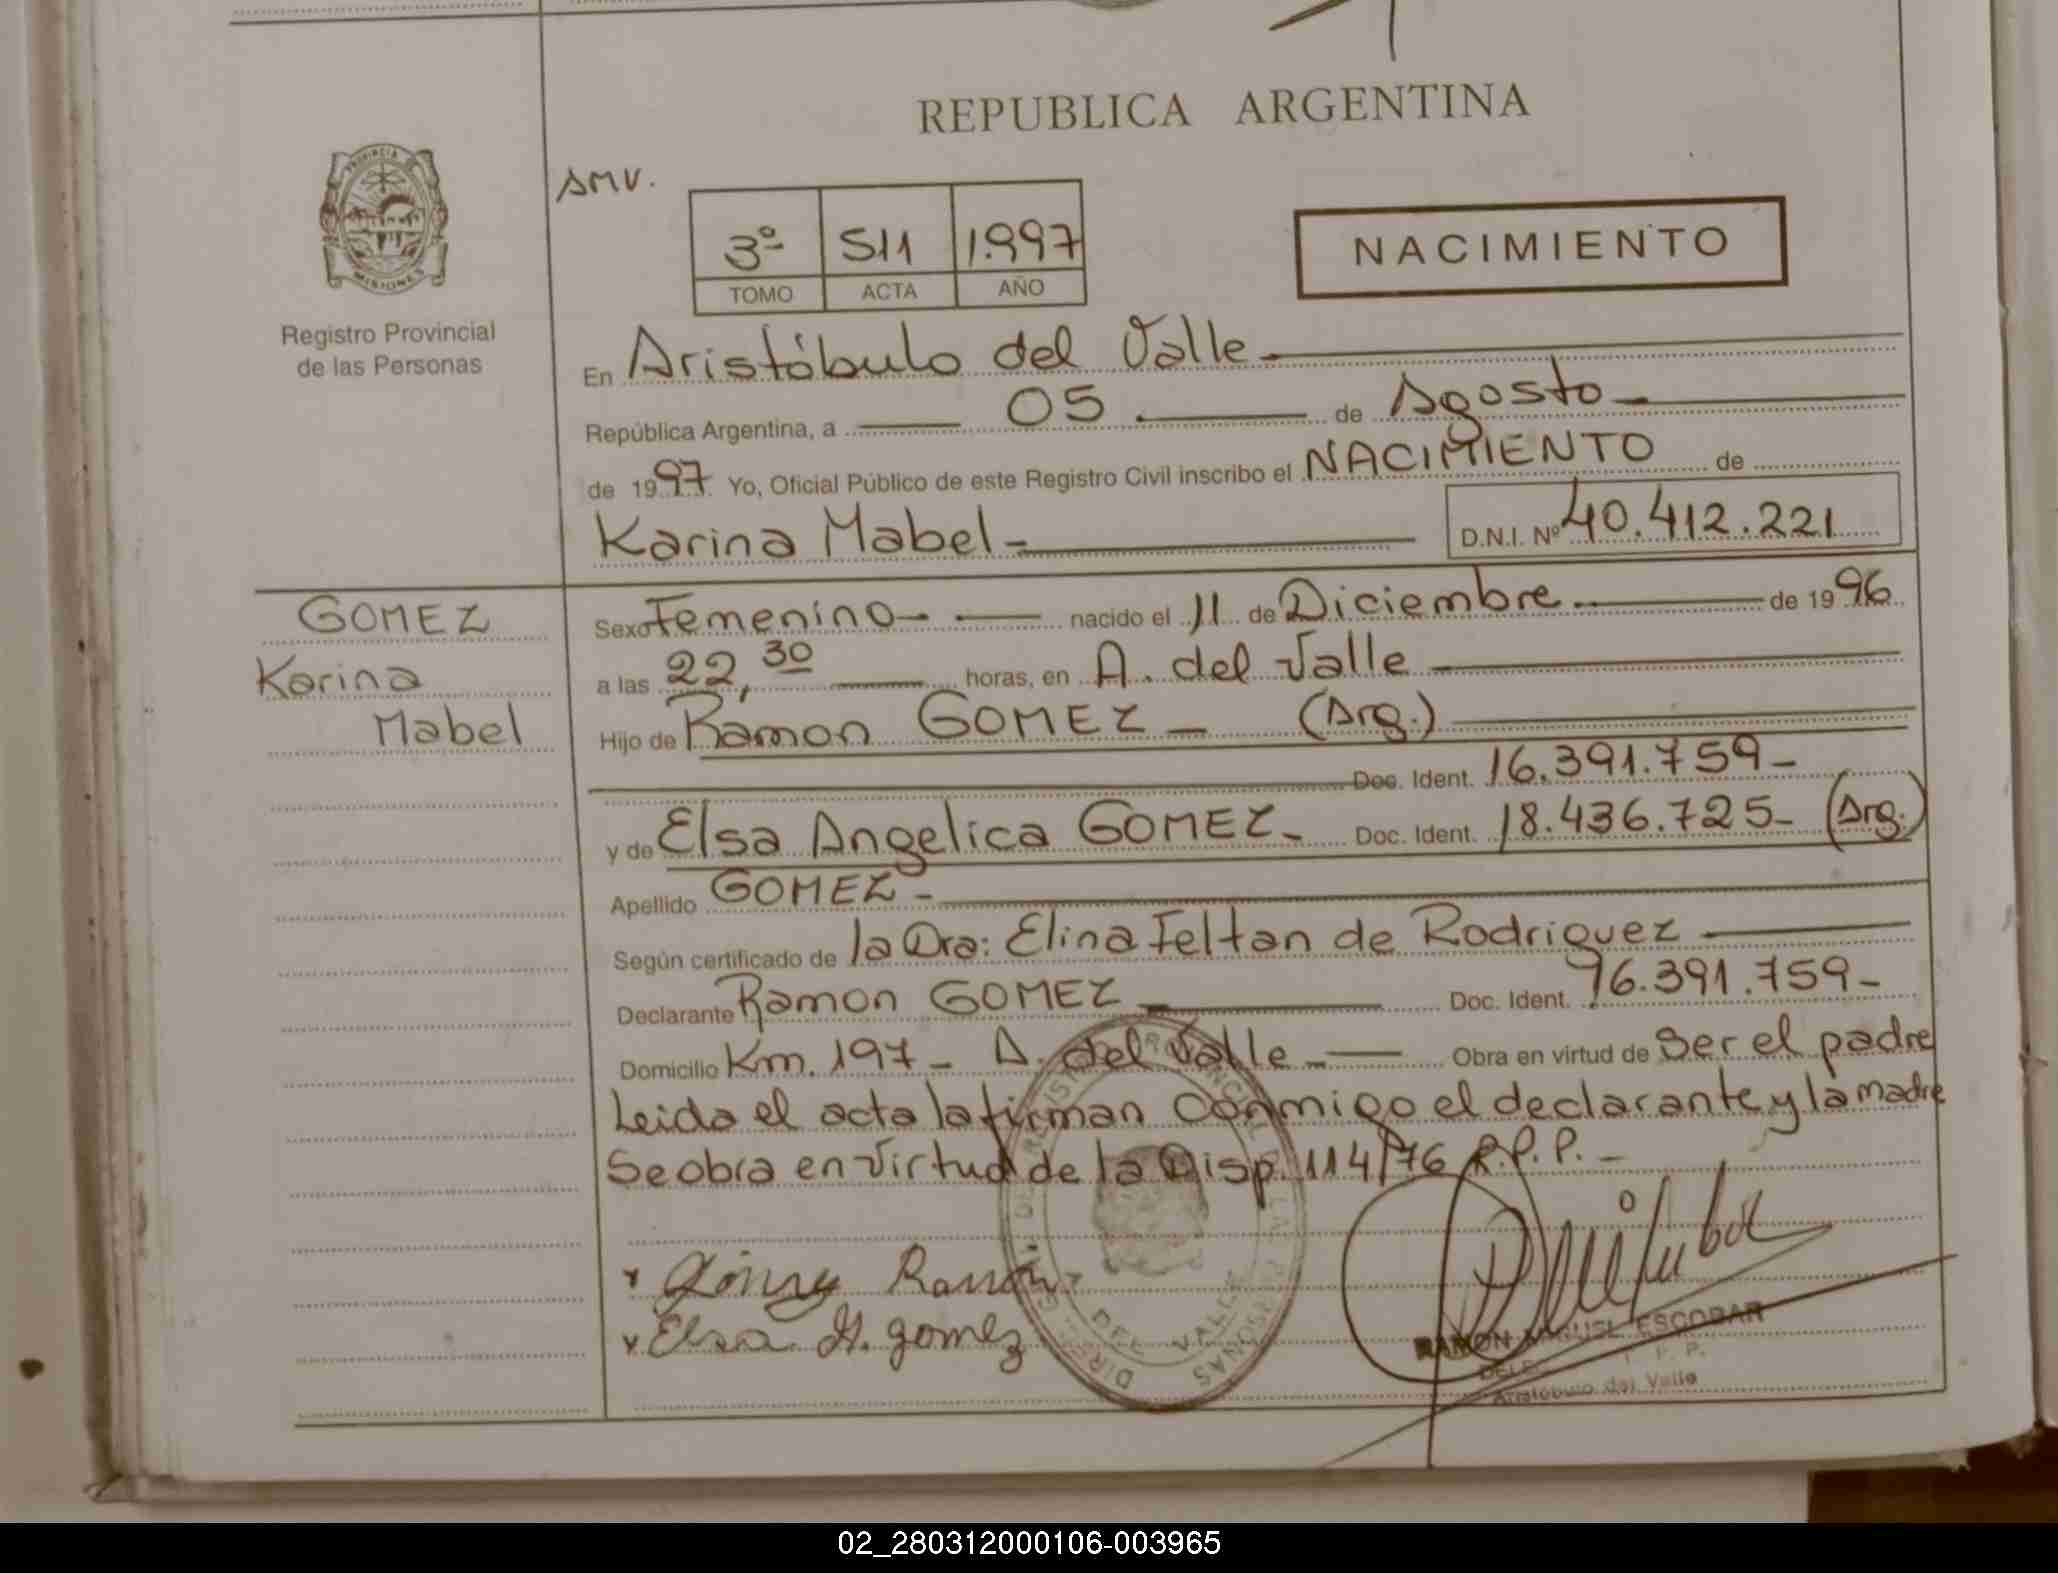 REPUBLICA ARGENTINA
PROVINCIA DE
MISIONES
Registro Provincial
de las Personas
AMV.
3º 511 1.997
TOMO ACTA AÑO
NACIMIENTO
En Aristóbulo del Valle
República Argentina, a 05 de Agosto
de 1997 Yo, Oficial Público de este Registro Civil inscribo el NACIMIENTO de
Karina Mabel D.N.I. Nº 40.412.221
GOMEZ
Karina
Mabel
Sexo Femenino nacido el 11 de Diciembre de 1996
a las 22,30 horas, en A. del Valle
Hijo de Ramon GOMEZ (Arg.)
Doc. Ident. 16.391.759
y de Elsa Angelica GOMEZ Doc. Ident. 18.436.725 (Arg.)
Apellido GOMEZ
Según certificado de la Dra: Elina Feltan de Rodriguez
Declarante Ramon GOMEZ Doc. Ident. 16.391.759
Domicilio Km. 197 - A. del Valle Obra en virtud de Ser el padre
Leida el acta la firman conmigo el declarante y la madre
Se obra en virtud de la Disp. 114/76 R.P.P.
Ramon
Elsa A. gomez
DEL VALLE
RAMON MIGUEL ESCOBAR
Aristóbulo del Valle
02_280312000106-003965